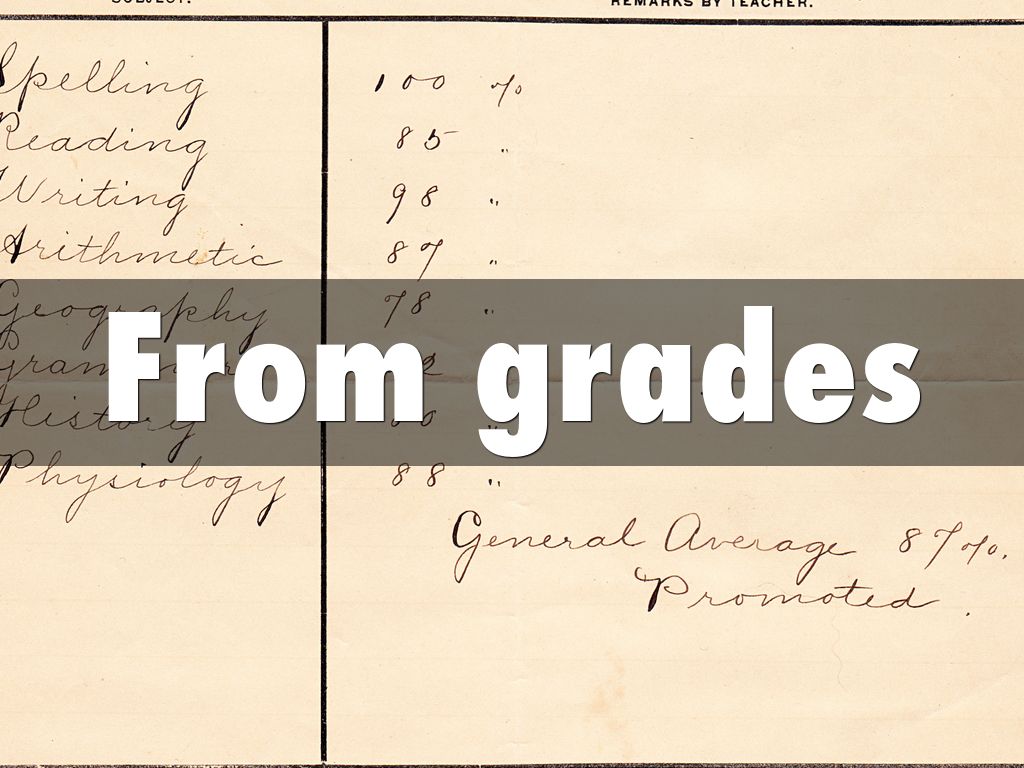 SUBJECT. REMARKS BY TEACHER.
Spelling 100 %
Reading 85 "
Writing 98 "
Arithmetic 87 "
Geography 78 "
From grades
History "
Physiology 88 "
General Average 87%.
Promoted.